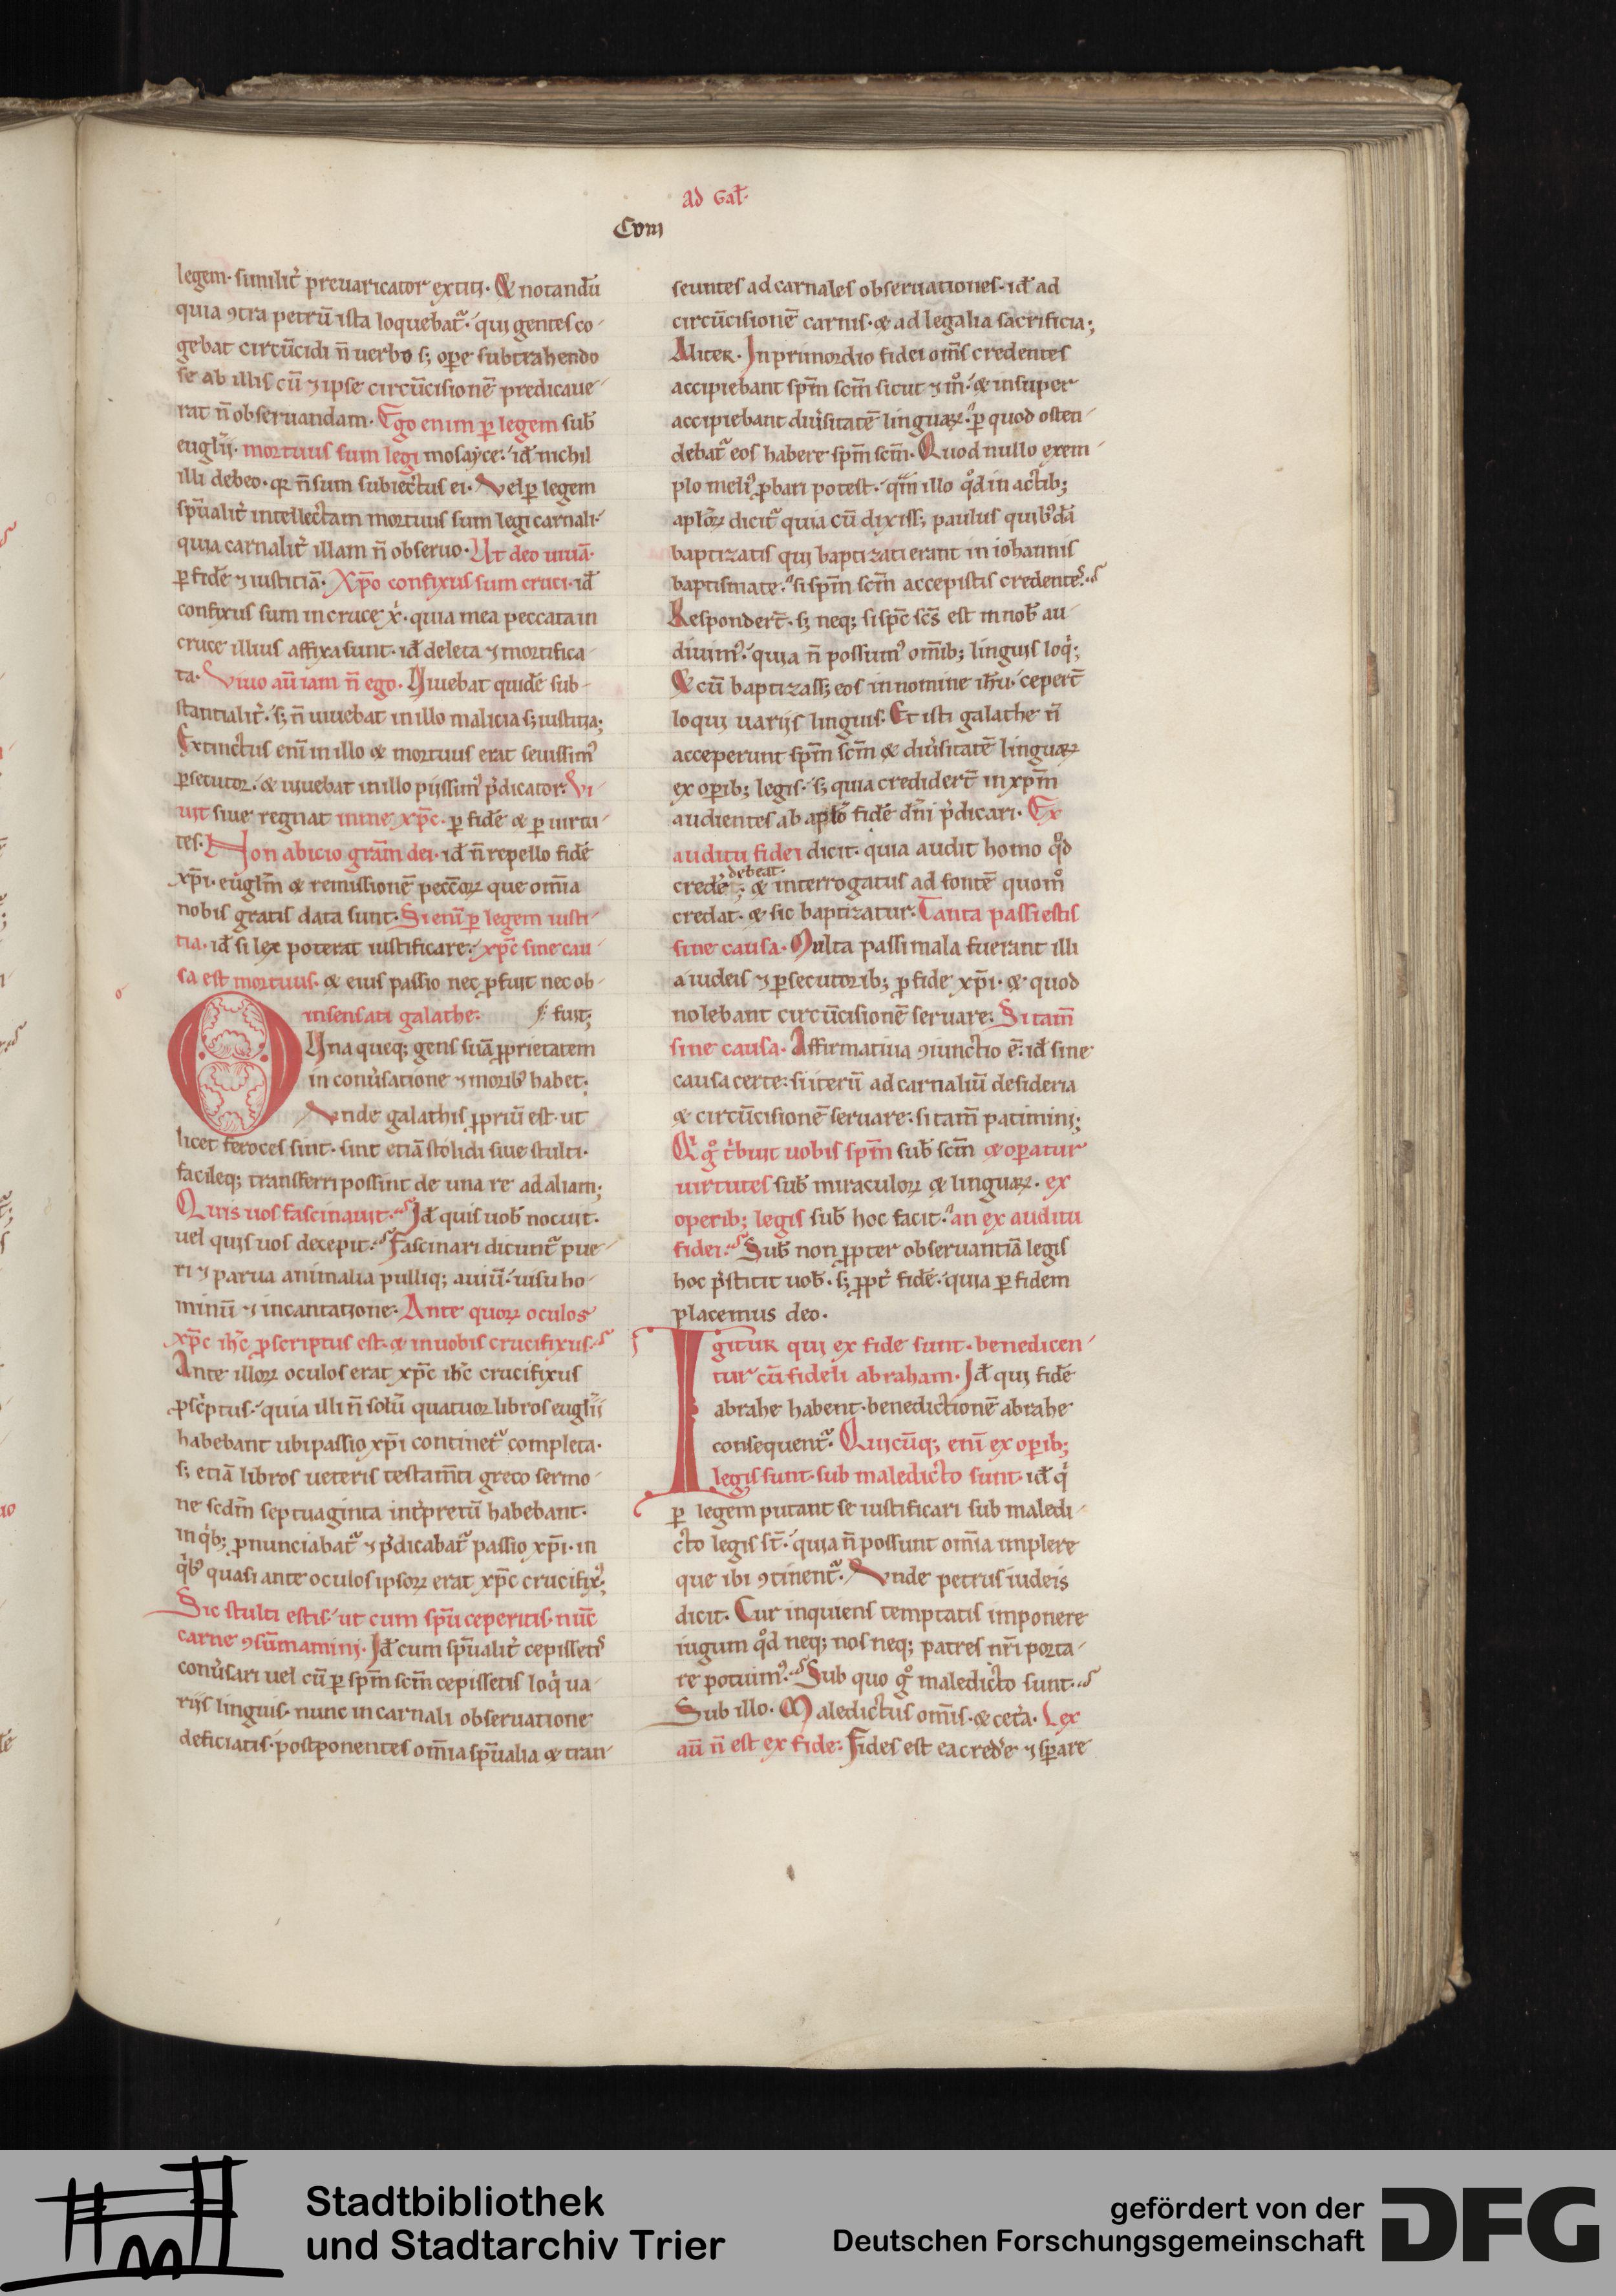 ad Gal̄.
Cvm
legem· similit̉ preuaricator extiti· & notandū
quia ꝯtra petrū ista loquebat᷑· qui gentes co-
gebat circūcidi n̄ uerbo s; oꝑe subtrahendo
se ab illis cū ⁊ ipse circūcisionē predicaue-
rat n̄ obseruandam· Ego enim ꝑ legem sub̄
eugl̄ii· mortuus sum legi mosayce· id̄ nichil
illi debeo· qr̄ n̄ sum subiectus ei· Vel ꝑ legem
sp̄ualit̉ intellectam mortuus sum legi carnali·
quia carnalit̉ illam n̄ obseruo· Ut deo uiuā·
ꝑ fidē ⁊ iusticiā· Xp̄o confixus sum cruci· id̄
confixus sum in cruce x̉· quia mea peccata in
cruce illius affixa sunt· id̄ deleta ⁊ mortifica-
ta· Viuo aū iam n̄ ego· Viuebat quidē sub-
stantialit̉· s; n̄ uiuebat in illo malicia s; iusticia;
Extinctus enī in illo & mortuus erat seuissim᷒
ꝑsecutor· & uiuebat in illo pijssim᷒ p̄dicator· Vi
uit siue regnat in me xp̄c· ꝑ fidē & ꝑ uirtu-
tes· Non abicio grām dei· id̄ n̄ repello fidē
xp̄i· eugl̄m & remissionē pecc̄oꝝ que om̄ia
nobis gratis data sunt· Si enī ꝑ legem iusti-
tia· id̄ si lex poterat iustificare· xp̄c sine cau-
sa est mortuus· & eius passio nec ꝓfuit nec ob-
O insensati galathe· fuit;
Vna queq; gens suā ꝓprietatem
in conūsatione ⁊ morib᷒ habet·
Vnde galathis ꝓpriū est· ut
licet feroces sint· sint etiā stolidi siue stulti·
facileq; transferri possint de una re ad aliam;
Quis uos fascinauit· Id̄ quis uob̄ nocuit·
uel quis uos decepit· Fascinari dicunt᷑ pue-
ri ⁊ parua animalia pulliq; auiū· uisu ho-
minū ⁊ incantatione· Ante quoꝝ oculos
xp̄c ih̄c ꝓscriptus est· & in uobis crucifixus·
Ante illoꝝ oculos erat xp̄c ih̄c crucifixus
ꝓsc̉ptus· quia illi n̄ solū quatuor libros eugl̄ii
habebant ubi passio xp̄i continet᷑ completa·
s; etiā libros ueteris testam̄ti greco sermo-
ne scd̄m septuaginta int̉pretū habebant·
in q̉b; ꝓnunciabat᷑ ⁊ p̄dicabat᷑ passio xp̄i· in
q̉b᷒ quasi ante oculos ipsoꝝ erat xp̄c crucifix᷒;
Sic stulti estis· ut cum sp̄u ceperitis· nūc
carne ꝯsūmamini· Id̄ cum sp̄ualit̉ cepissetis
conūsari uel cū ꝑ sp̄m sc̄m cepissetis loq̉ ua-
rijs linguis· nunc in carnali obseruatione
deficiatis· postponentes om̄ia sp̄ualia & tran-
seuntes ad carnales obseruationes· id̄ ad
circūcisionē carnis· & ad legalia sacrificia;
Aliter· In primordio fidei om̄s credentes
accipiebant sp̄m sc̄m sicut ⁊ m̊· & insuper
accipiebant diūsitatē linguaꝝ· ꝑ quod osten-
debat᷑ eos habere sp̄m sc̄m· Quod nullo exem-
plo meli᷒ ꝓbari potest· q̄m illo q̊d in actib;
apl̄oꝝ dicit᷑ quia cū dixiss; paulus quib᷒dā
baptizatis qui baptizati erant in iohannis
baptismate· si sp̄m sc̄m accepistis credentes·
Responder̄t· s; neq; si sp̄c sc̄s est in nob̄ au-
diuim᷒· quia n̄ possum᷒ om̄ib; linguis loq̉;
& cū baptizass; eos in nomine ih̄u· ceper̄t
loqui uarijs linguis· Et isti galathe n̄
acceperunt sp̄m sc̄m & diūsitatē linguaꝝ
ex oꝑib; legis· s; quia credider̄t in xp̄m
audientes ab apl̄o fidē dn̄i p̄dicari· Ex
auditu fidei dicit· quia audit homo q̊d
credē debeat; & interrogatus ad fontē quom̊
credat· & sic baptizatur· Tanta passi estis
sine causa· Multa passi mala fuerant illi
a iudeis ⁊ ꝑsecutorib; ꝓ fide xp̄i· & quod
nolebant circūcisionē seruare· Si tam̄
sine causa· Affirmatiua ꝯiunctio ē· id̄ sine
causa certe· si iterū ad carnaliū desideria
& circūcisionē seruare· si tam̄ patimini;
Q̉ g̊ t̉buit uobis sp̄m sub̄ sc̄m & oꝑatur
uirtutes sub̄ miraculoꝝ & linguaꝝ· ex
operib; legis sub̄ hoc facit· an ex auditu
fidei· Sub̄ non ꝓpter obseruantiā legis
hoc p̄stitit uob̄· s; ꝓpt̉ fidē· quia ꝑ fidem
placemus deo·
Igitur qui ex fide sunt· benedicen-
tur cū fideli abraham· Id̄ qui fidē
abrahe habent· benedictionē abrahe
consequent᷑· Quicūq; enī ex oꝑib;
legis sunt· sub maledicto sunt· id̄ q̉
ꝑ legem putant se iustificari sub maledi-
cto legis st̄· quia n̄ possunt om̄ia implere
que ibi ꝯtinent᷑· Vnde petrus iudeis
dicit· Cur inquiens temptatis imponere
iugum q̊d neq; nos neq; patres nr̄i porta-
re potuim᷒· Sub quo g̊ maledicto sunt·
Sub illo· Maledictus om̄is· & cet̉a· Lex
aū n̄ est ex fide· Fides est ea credē ⁊ sꝑare
Stadtbibliothek
und Stadtarchiv Trier
gefördert von der
Deutschen Forschungsgemeinschaft
DFG